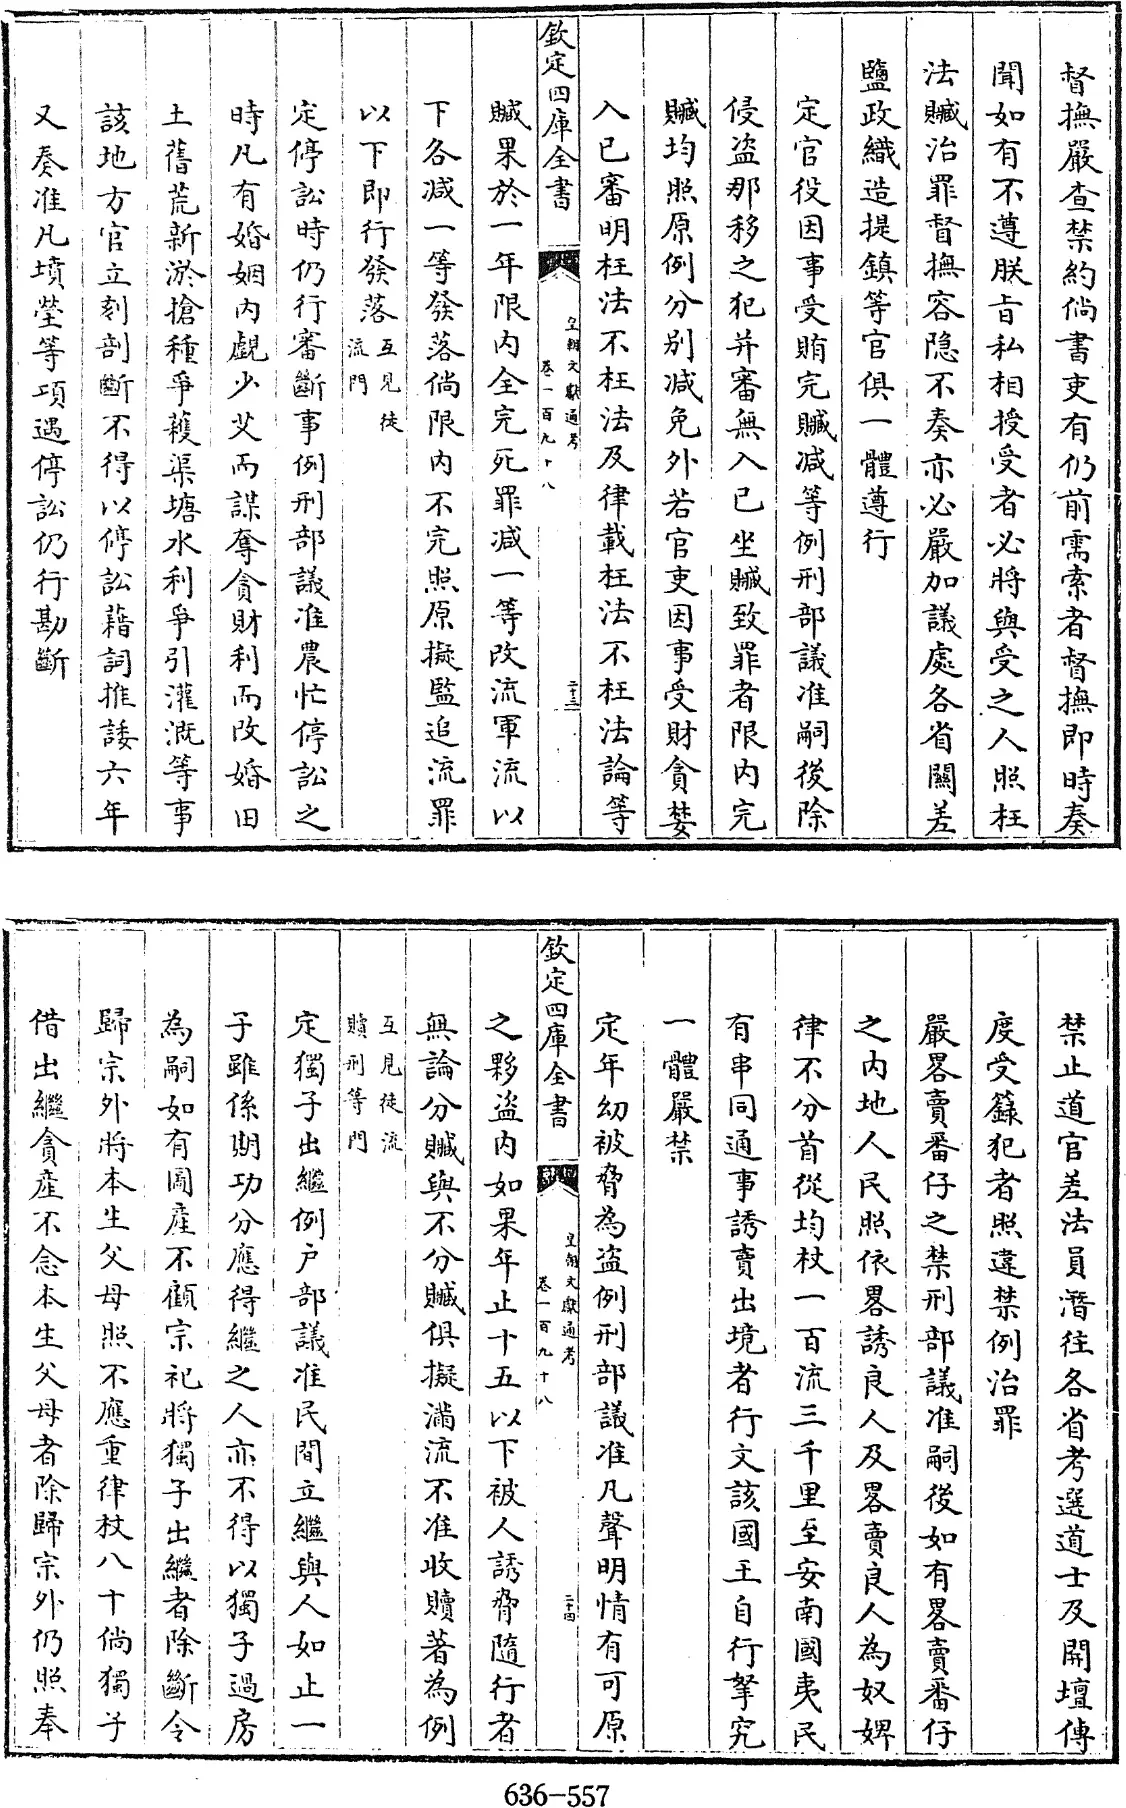 督撫嚴查禁約倘書吏有仍前需索者督撫即時奏
聞如有不遵朕旨私相授受者必將與受之人照枉
法贓治罪督撫容隱不奏亦必嚴加議處各省關差
鹽政織造提鎮等官俱一體遵行
定官役因事受賄完贓減等例刑部議准嗣後除
侵盜那移之犯并審無入已坐贓致罪者限內完
贓均照原例分別減免外若官吏因事受財貪婪
入已審明枉法不枉法及律載枉法不枉法論等
欽定四庫全書
皇朝文獻通考
卷一百九十八
二十三
贓果於一年限內全完死罪減一等改流軍流以
下各減一等發落倘限內不完照原擬監追流罪
以下即行發落互見徒
流門
定停訟時仍行審斷事例刑部議准農忙停訟之
時凡有婚姻內覷少艾而謀奪貪財利而改婚田
土舊荒新淤搶種爭穫渠塘水利爭引灌溉等事
該地方官立刻剖斷不得以停訟藉詞推諉六年
又奏准凡墳塋等項遇停訟仍行勘斷
禁止道官差法員潛往各省考選道士及開壇傳
度受籙犯者照違禁例治罪
嚴畧賣番仔之禁刑部議准嗣後如有畧賣番仔
之內地人民照依畧誘良人及畧賣良人為奴婢
律不分首從均杖一百流三千里至安南國夷民
有串同通事誘賣出境者行文該國王自行拏究
一體嚴禁
定年幼被脅為盜例刑部議准凡聲明情有可原
欽定四庫全書
皇朝文獻通考
卷一百九十八
二十四
之夥盜內如果年止十五以下被人誘脅隨行者
無論分贓與不分贓俱擬滿流不准收贖著為例
互見徒流
贖刑等門
定獨子出繼例户部議准民間立繼與人如止一
子雖係期功分應得繼之人亦不得以獨子過房
為嗣如有圖產不顧宗祀將獨子出繼者除斷令
歸宗外將本生父母照不應重律杖八十倘獨子
借出繼貪產不念本生父母者除歸宗外仍照奉
636-557